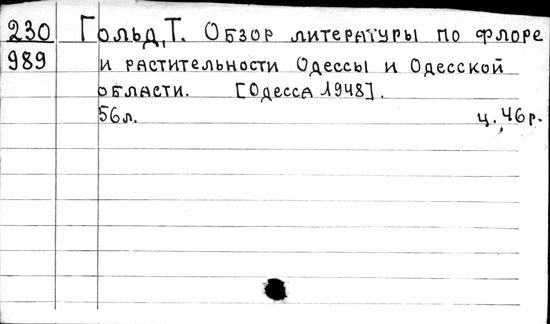 230 Гольд, Т. Обзор литературы по флоре
989 и растительности Одессы и Одесской
области. [Одесса 1948].
56л. ц. 46р.